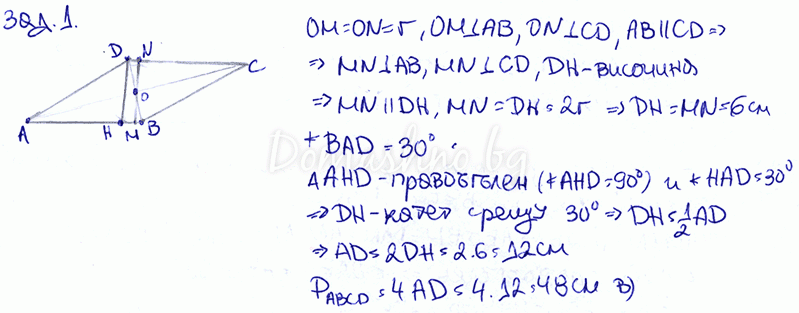 Зад. 1.
D N
C
O
A H M B
OM=ON=r, OM⊥AB, ON⊥CD, AB||CD⇒
⇒ MN⊥AB, MN⊥CD, DH-височина
⇒ MN||DH, MN=DH=2r ⇒ DH=MN=6см
∢BAD=30°
△AHD-правоъгълен (∢AHD=90°) и ∢HAD=30°
⇒ DH-катет срещу 30° ⇒ DH=1/2 AD
⇒ AD=2DH=2.6=12см
P_ABCD=4AD=4.12=48см в)
Domashno.bg